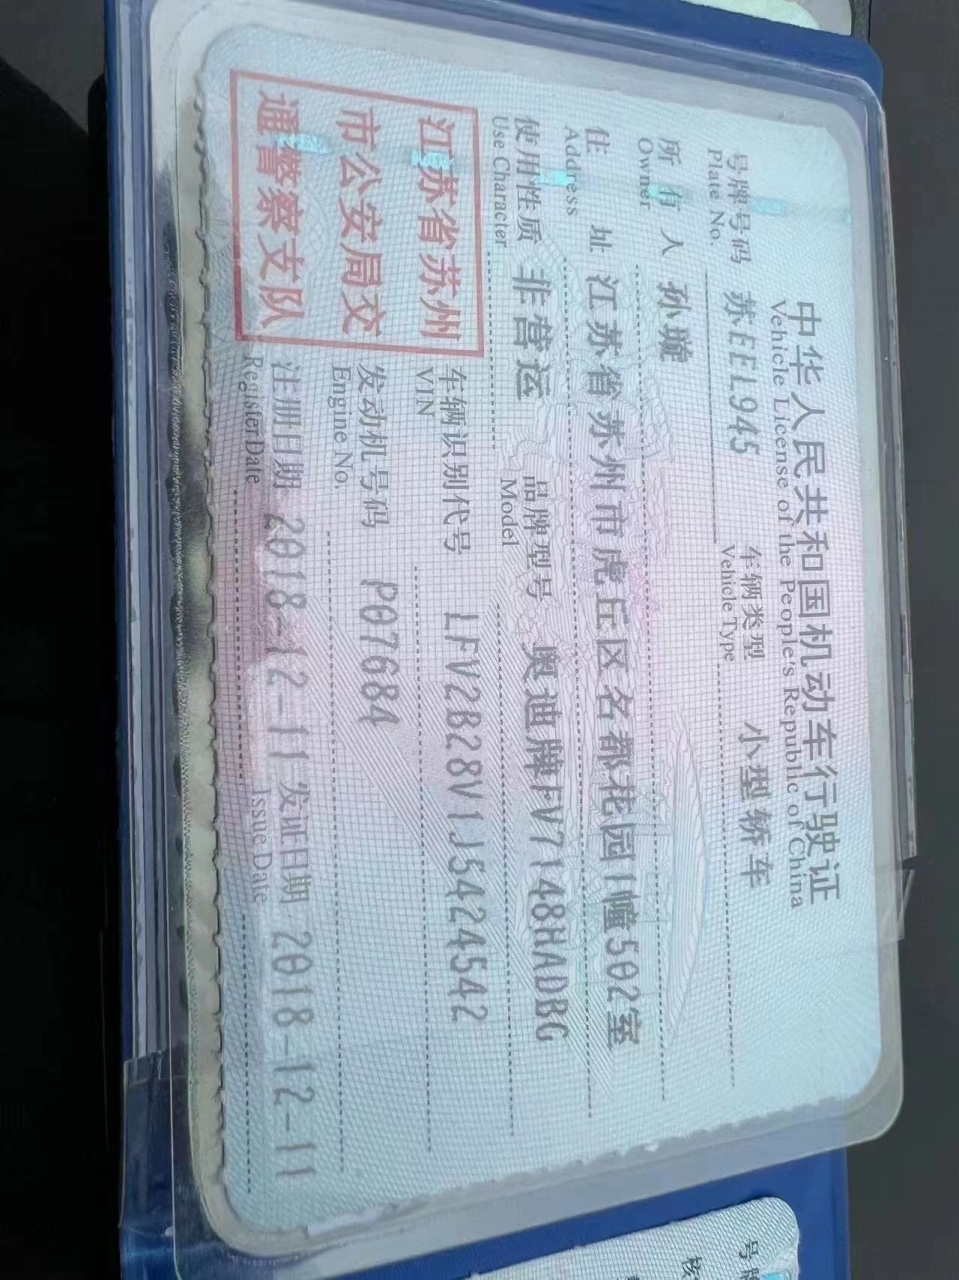 中华人民共和国机动车行驶证
Vehicle License of the People's Republic of China
号牌号码 苏EEL945 车辆类型 小型轿车
Plate No. Vehicle Type
所有人 孙璇
Owner
住址 江苏省苏州市虎丘区名都花园1幢502室
Address
使用性质 非营运 品牌型号 奥迪牌FV7148HADBG
Use Character Model
江苏省苏州
市公安局交
通警察支队
车辆识别代号 LFV2B28V1J5424542
VIN
发动机号码 P07684
Engine No.
注册日期 2018-12-11 发证日期 2018-12-11
Register Date Issue Date
号牌